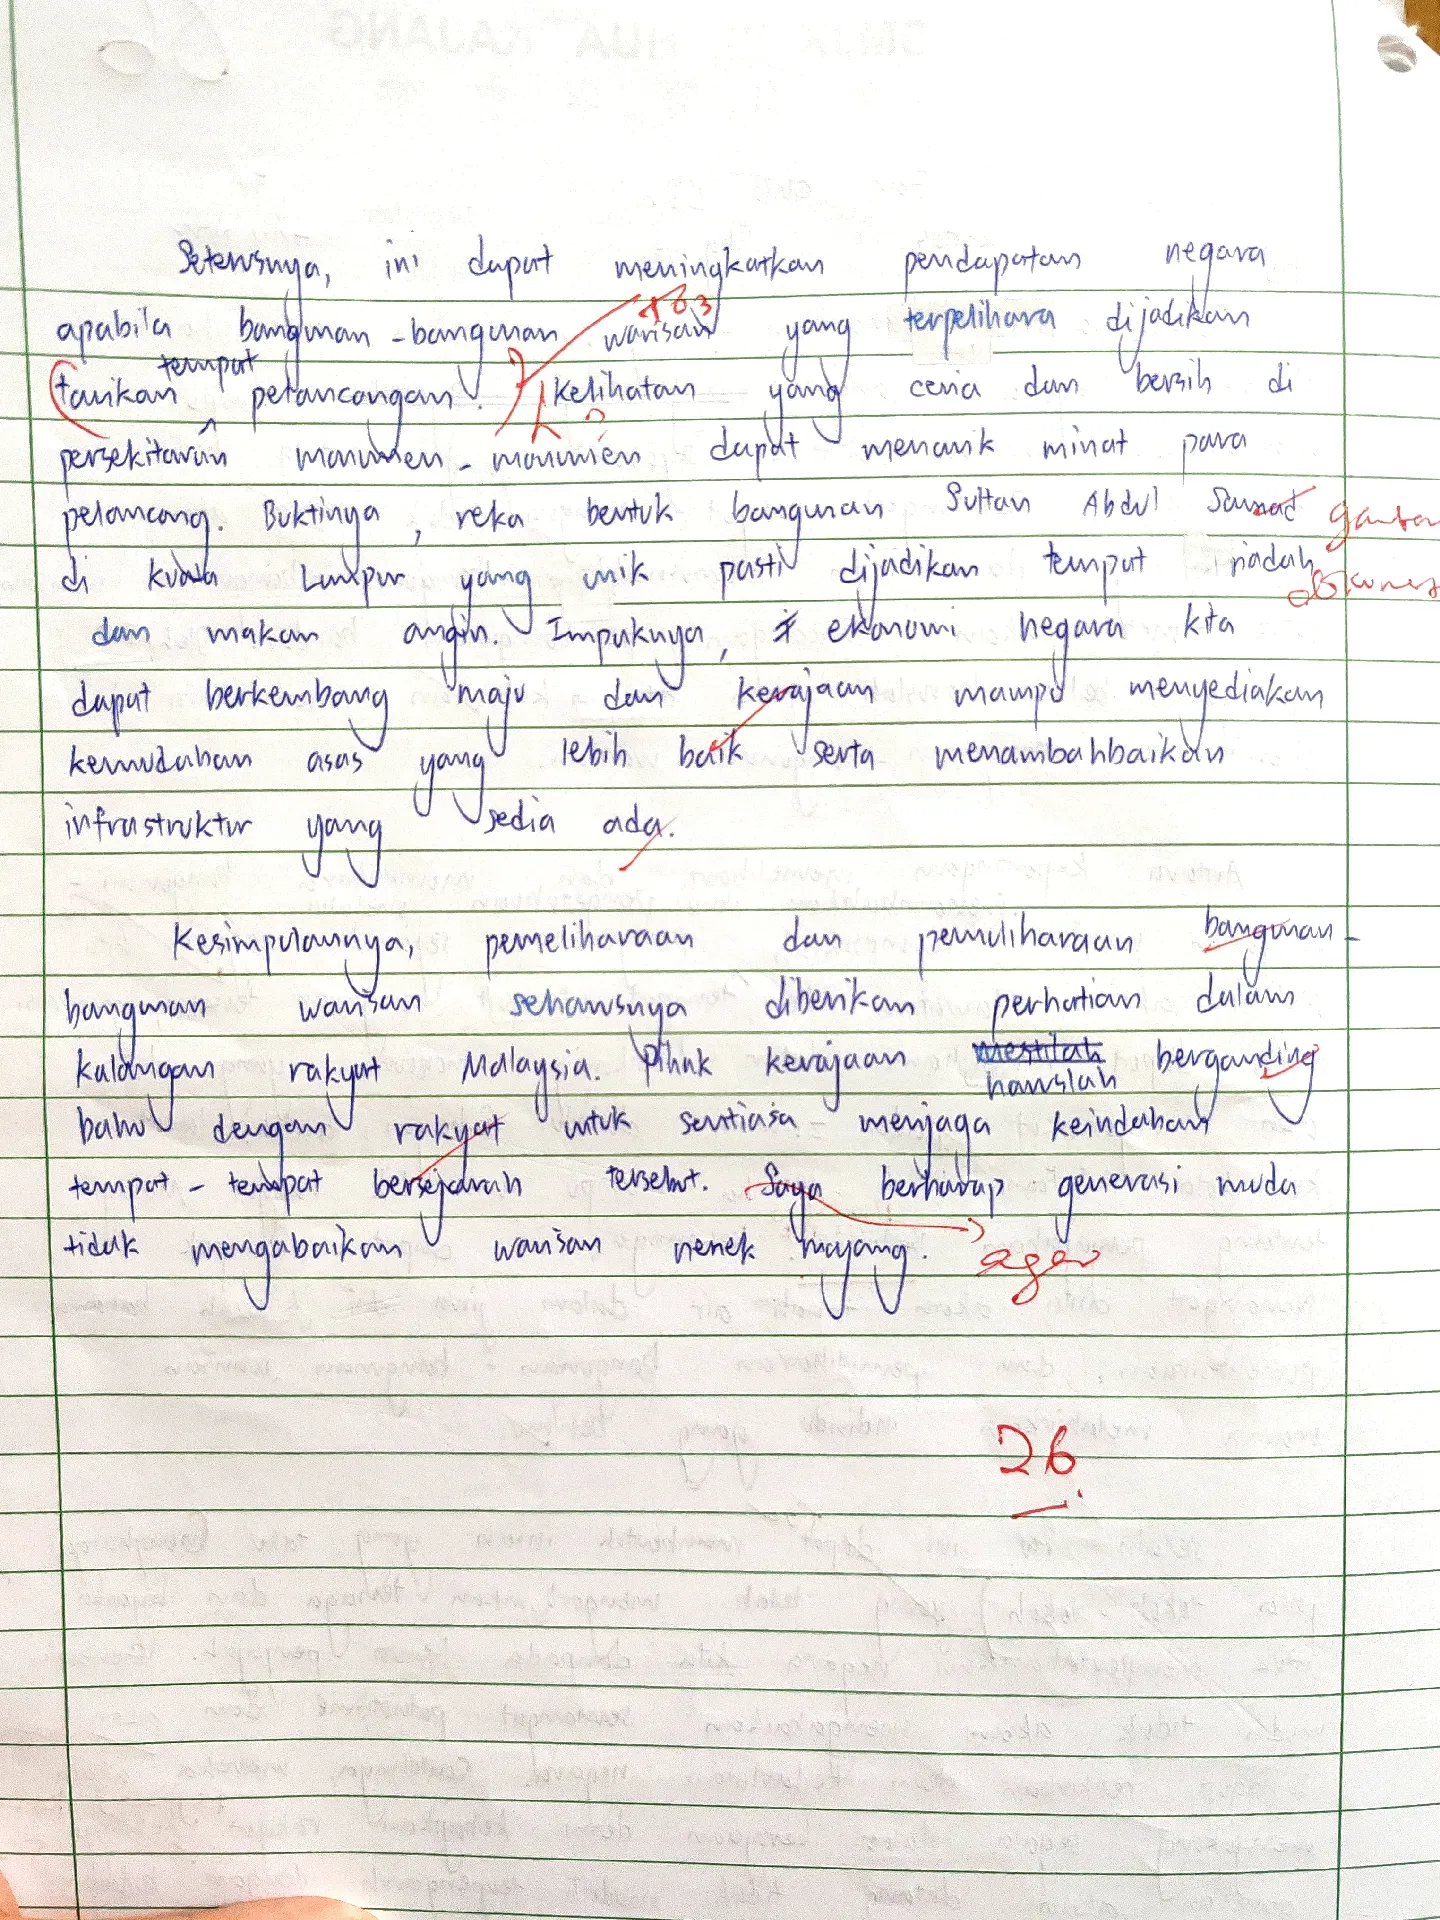 Seterusnya, ini dapat meningkatkan pendapatan negara
apabila bangunan-bangunan warisan yang terpelihara dijadikan
tempat
tarikan pelancongan. Kelihatan yang ceria dan bersih di
persekitaran monumen-monumen dapat menarik minat para
pelancong. Buktinya, reka bentuk bangunan Sultan Abdul Samad
di Kuala Lumpur yang unik pasti dijadikan tempat riadah
dan makan angin. Impaknya, ekonomi negara kita
dapat berkembang maju dan kerajaan mampu menyediakan
kemudahan asas yang lebih baik serta menambahbaikan
infrastruktur yang sedia ada.
Kesimpulannya, pemeliharaan dan pemuliharaan bangunan-
bangunan warisan seharusnya diberikan perhatian dalam
kalangan rakyat Malaysia. Pihak kerajaan mestilah berganding
haruslah
bahu dengan rakyat untuk sentiasa menjaga keindahan
tempat-tempat bersejarah tersebut. Saya berharap generasi muda
tidak mengabaikan warisan nenek moyang.
agar
26